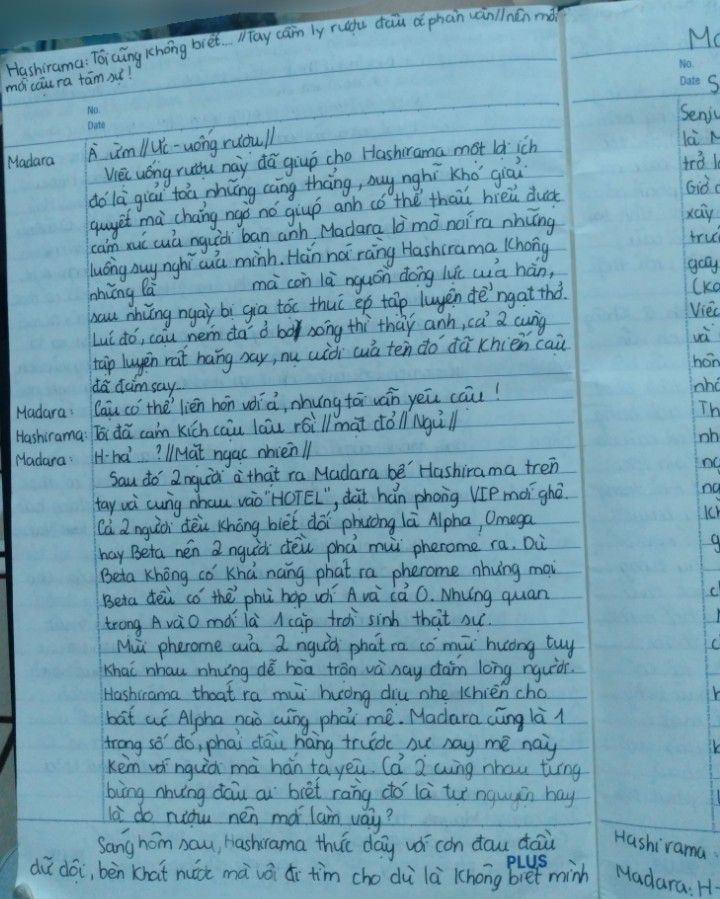 Hashirama: Tôi cũng không biết.... //Tay cầm ly rượu đầu phân vân// nên mới
mời cậu ra tâm sự!
No.
Date
Madara À ừm //Ực - uống rượu//
Việc uống rượu này đã giúp cho Hashirama một lợi ích
đó là giải toả những căng thẳng, suy nghĩ khó giải
quyết mà chẳng ngờ nó giúp anh có thể thấu hiểu được
cảm xúc của người bạn anh. Madara lờ mờ nói ra những
luồng suy nghĩ của mình. Hắn nói rằng Hashirama không
những là mà còn là nguồn động lực của hắn,
sau những ngày bị gia tộc thúc ép tập luyện đến ngạt thở.
Lúc đó, cậu ném đá ở bờ sông thì thấy anh, cả 2 cùng
tập luyện rất hăng say, nụ cười của tên đó đã khiến cậu
đã đắm say...
Madara: Cậu có thể liên hôn với ả, nhưng tôi vẫn yêu cậu!
Hashirama: Tôi đã cảm kích cậu lâu rồi //mặt đỏ// Ngủ//
Madara: H-hả...? //Mặt ngạc nhiên//
Sau đó 2 người à thật ra Madara bế Hashirama trên
tay và cùng nhau vào "HOTEL", đặt hẳn phòng VIP mới ghê.
Cả 2 người đều không biết đối phương là Alpha, Omega
hay Beta nên 2 người đều phả mùi pherome ra. Dù
Beta không có khả năng phát ra pherome nhưng mọi
Beta đều có thể phù hợp với A và cả O. Nhưng quan
trọng A và O mới là 1 cặp trời sinh thật sự.
Mùi pherome của 2 người phát ra có mùi hương tuy
khác nhau nhưng dễ hoà trộn và say đắm lòng người.
Hashirama thoát ra mùi hương dịu nhẹ khiến cho
bất cứ Alpha nào cũng phải mê. Madara cũng là 1
trong số đó, phải đầu hàng trước sự say mê này
kèm với người mà hắn ta yêu. Cả 2 cùng nhau tưng
bừng nhưng đâu ai biết rằng đó là tự nguyện hay
là do rượu nên mới làm vậy?
Sáng hôm sau, Hashirama thức dậy với cơn đau đầu
dữ dội, bèn khát nước mà vội đi tìm cho dù là không biết mình
PLUS
No.
Date S
Senju
là
trở
Giờ
xây
trư
gây
Việc
và
hôn
Th
nh
Hashirama:
Madara: H-